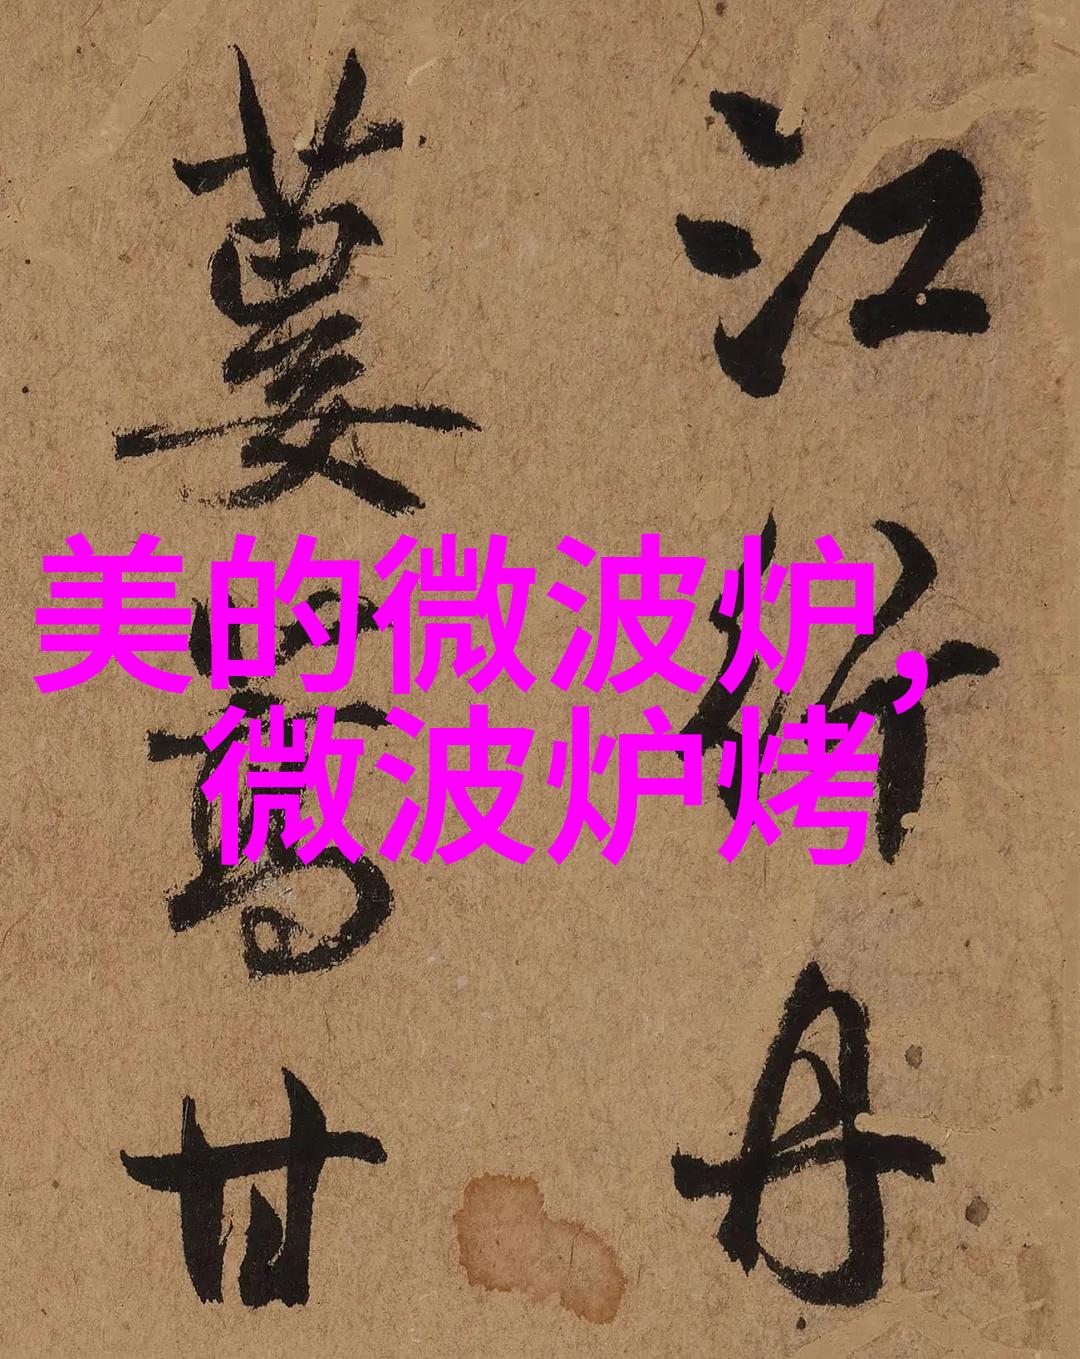 美的微波炉，
微波炉烤
江竹丹
蔓甘